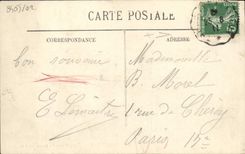 CARTE POSTALE
CORRESPONDANCE
ADRESSE
bon souvenir
E Lemaitre
Mademoiselle
B. Morel
1 rue de
Paris 15e